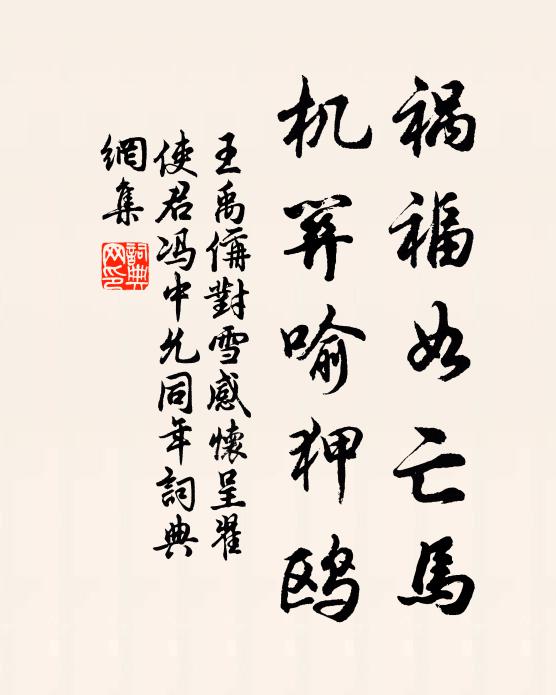 祸福如亡馬
机筭喻狎鸥
王禹偁對雪感懷呈翟
使君冯中允同年詞典
網集
詞典網印